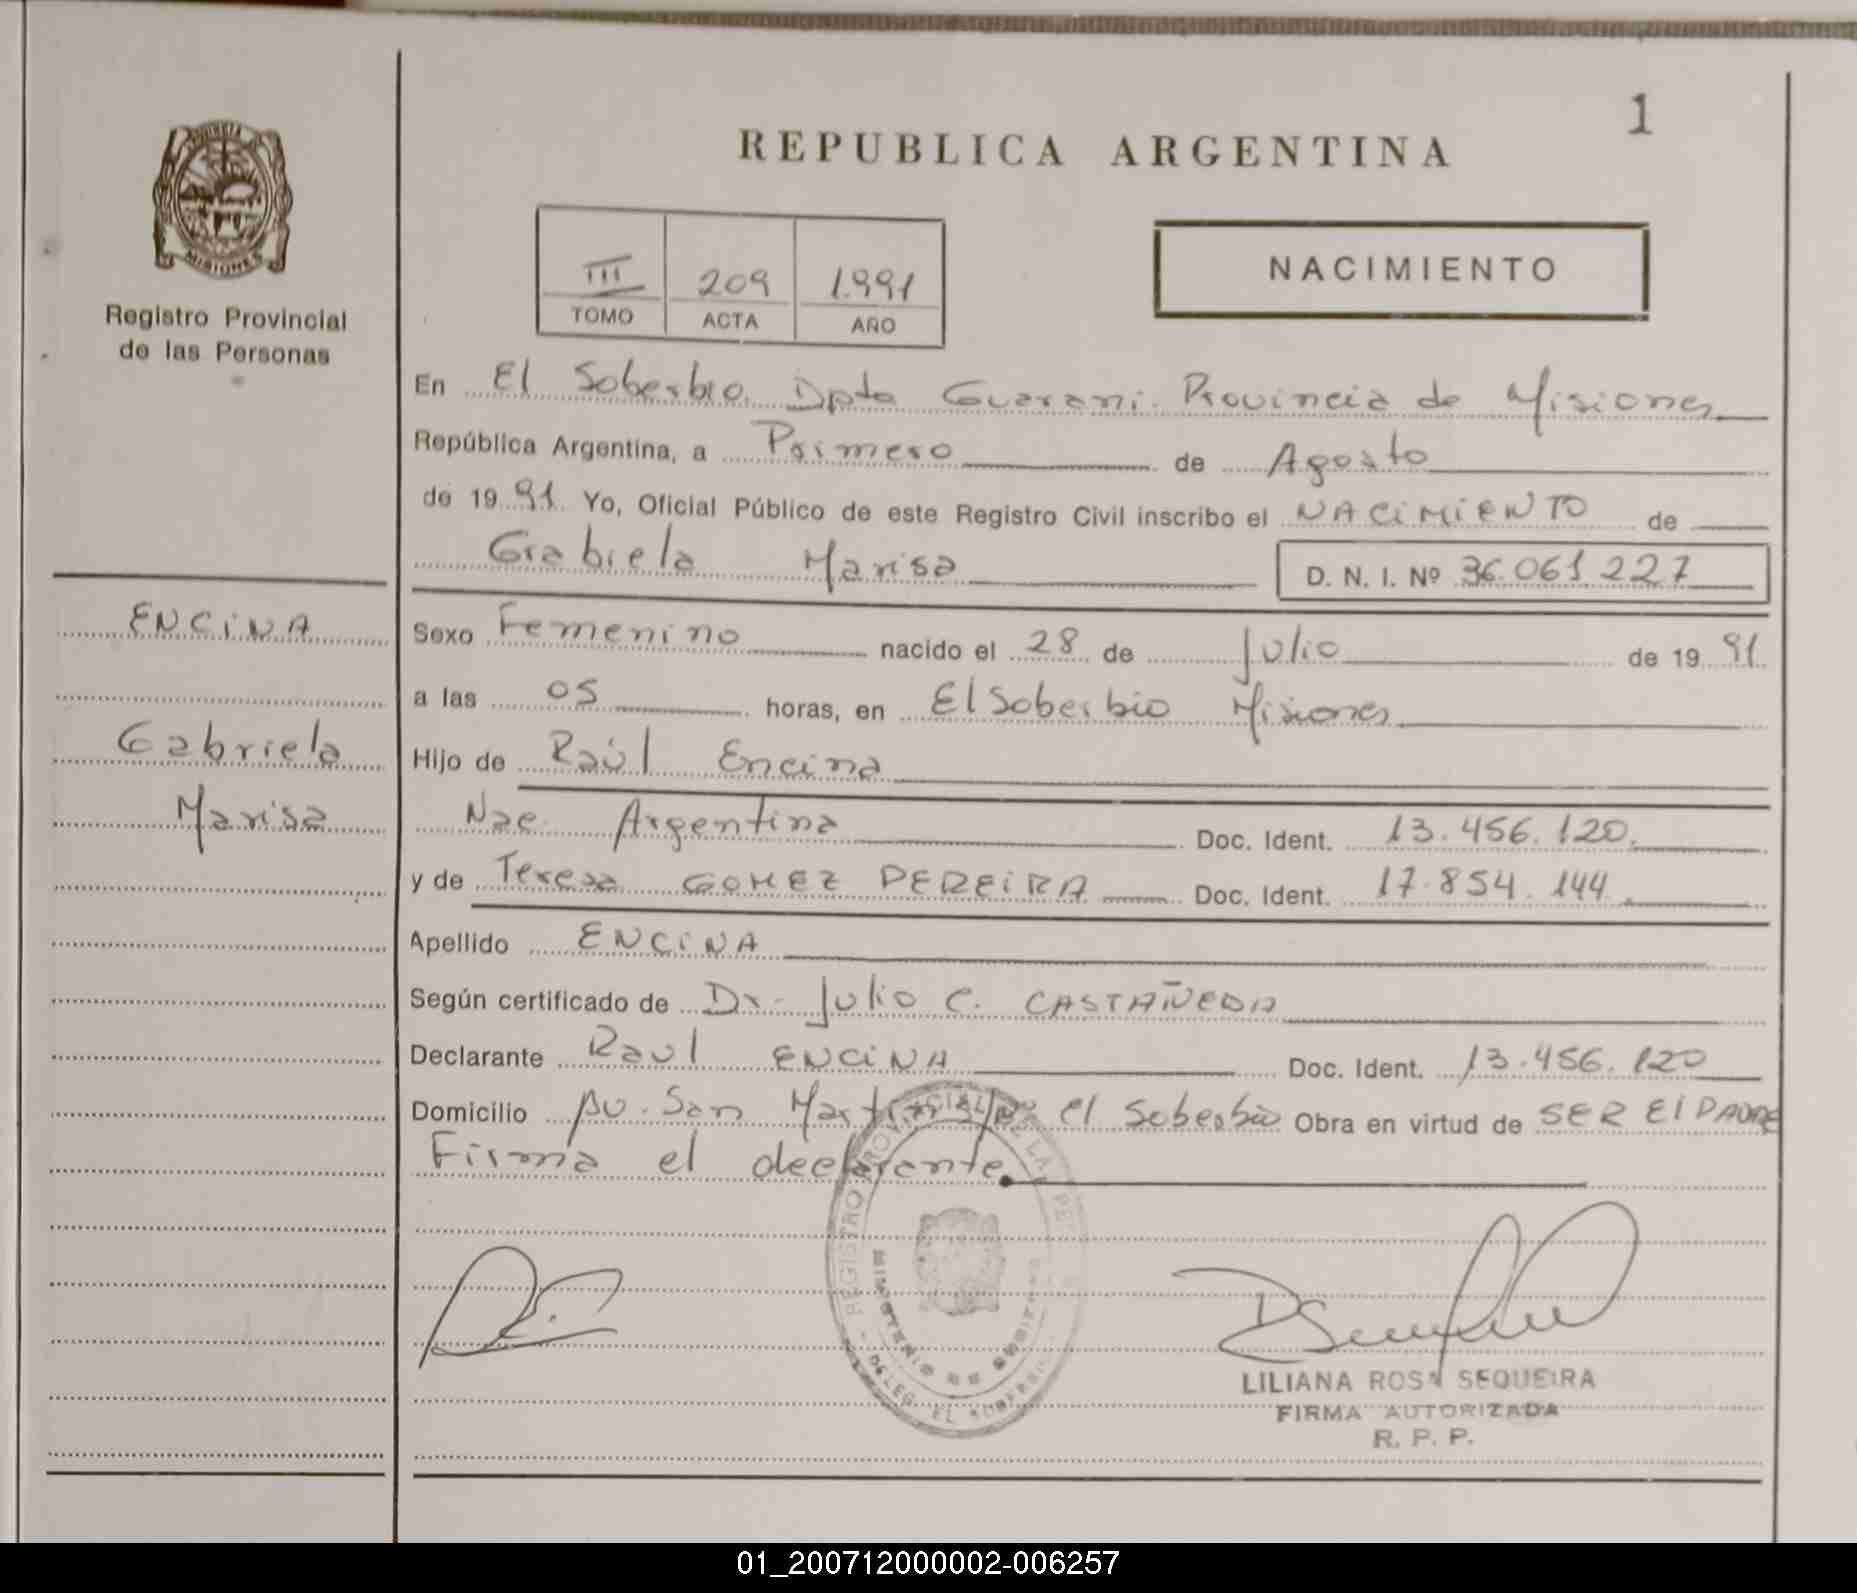 1
REPUBLICA ARGENTINA
MISIONES
Registro Provincial
de las Personas
III 209 1.991
TOMO ACTA AÑO
NACIMIENTO
En El Soberbio. Dpto Guarani. Provincia de Misiones
República Argentina, a Primero de Agosto
de 19 91 Yo, Oficial Público de este Registro Civil inscribo el NACIMIENTO de
Grabiela Marisa
D. N. I. Nº 36.061.227
ENCINA
Gabriela
Marisa
Sexo Femenino nacido el 28 de Julio de 19 91
a las 05 horas, en El Soberbio Misiones
Hijo de Raúl Encina
Nac. Argentina Doc. Ident. 13.456.120.
y de Teresa GOMEZ PEREIRA Doc. Ident. 17.854.144
Apellido ENCINA
Según certificado de Dr. Julio C. CASTAÑEDA
Declarante Raul ENCINA Doc. Ident. 13.456.120
Domicilio Av. San Martin s/nº El Soberbio Obra en virtud de SER El PADRE
Firma el declarante.
REGISTRO PROVINCIAL DE LAS
MINISTERIO DE
DELEG. EL SOBERBIO
LILIANA ROSA SEQUEIRA
FIRMA AUTORIZADA
R. P. P.
01_200712000002-006257